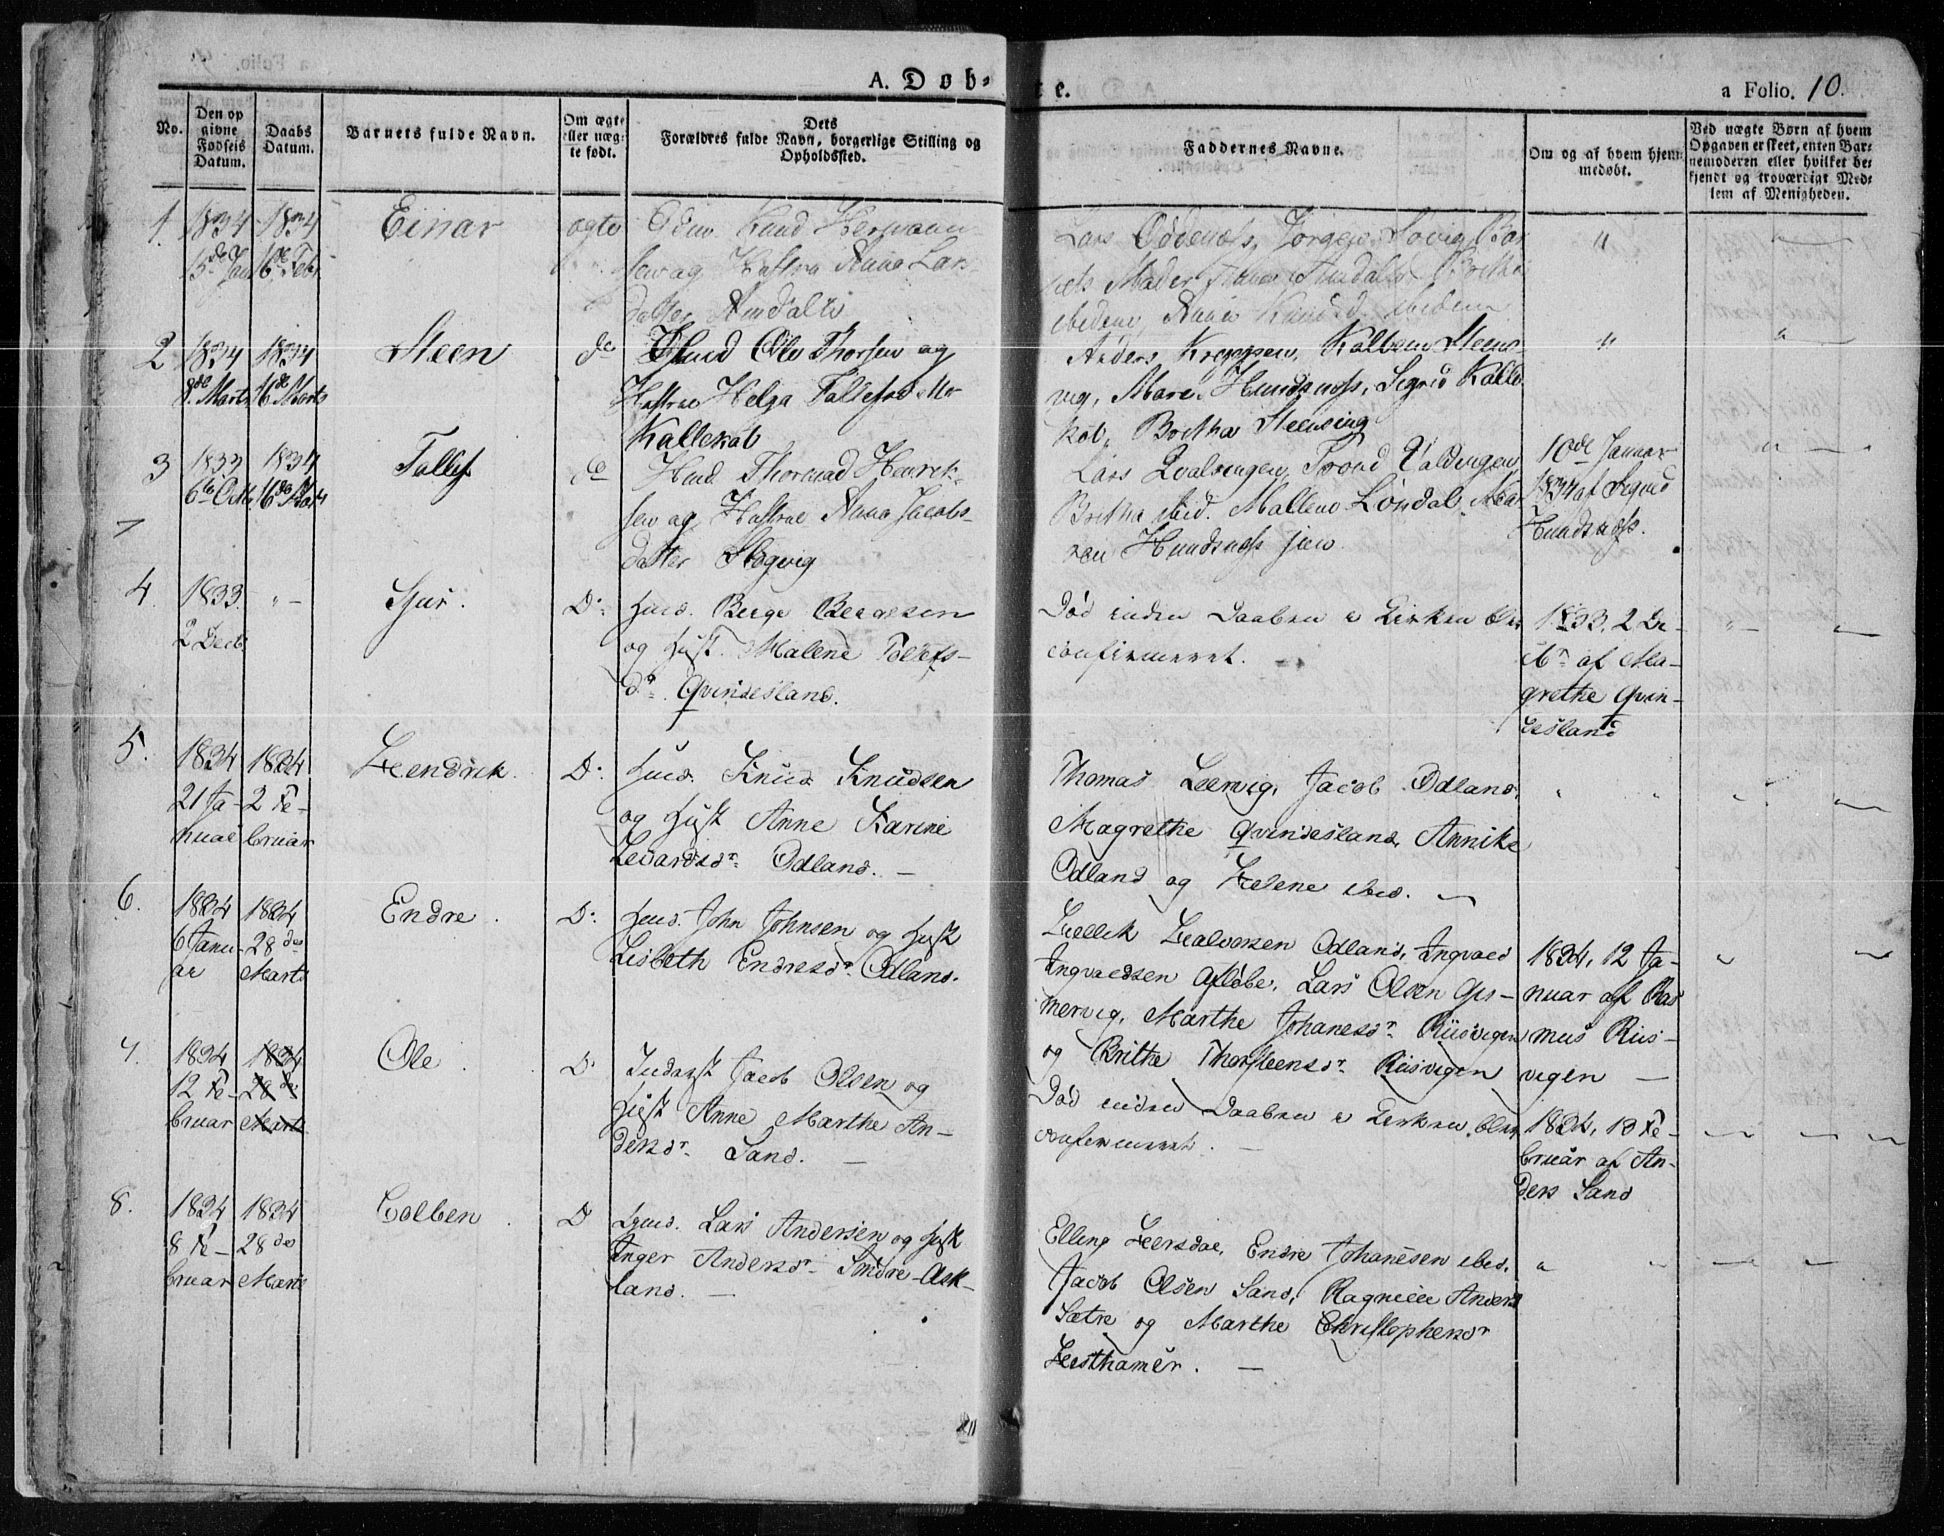 A. Døb-
te.
a Folio. 10.
No.
Den op
givne
Fødsels
Datum.
Daabs
Datum.
Barnets fulde Navn.
Om ægte
eller uæg-
te født.
Dets
Forældres fulde Navn, borgerlige Stilling og
Opholdssted.
Faddernes Navne.
Om og af hvem hjem-
medøbt.
Ved uægte Børn af hvem
Opgaven er skeet, enten Bar-
nemoderen eller hvilket be-
kjendt og troværdigt Med-
lem af Menigheden.
1.
1834
Jan
1834
16de Febr
Einar
ægte
Knud Hermann-
sen og Hustrue Anna Lars-
datter
Lars Oddenæs, Jørgen
Knudsd. ibidem
2
1834
8de Marts
1834
16de Marts
Steen
do
Huusmd Ole Thorsen og
Hustrue Helga Tollefsdatter
Kallekot
Anders Kreppen, Kolbeen Steens-
vig, Maren Hundsnæss, Sigrid Kalle-
kot, Bretha Steensvig
3
1833
6te Octb.
1834
16de Marts
Tollef
do
Huusmd Thormod Henrik-
sen og Hustrue Anna Jacobs-
datter Skogvig
Lars Qvalvengen, Trond Valdengen,
Bretha ibid. Mallene Løndal, Ma-
ren Hundsnæss jun.
10de Januar
1834 af Sigrid
Hundsnæss.
4.
1833.
2 Decb
" -
Sjur.
Do
Huusmd. Berge Bergesen
og Hust. Malene Tollefs-
dr. Qvindesland.
Død inden Daaben i Kirken blev
confirmeret.
1833. 2 De-
cbr af Ma-
grethe Qvin-
desland
5.
1834
21 Ja-
nuar
1834
2 Fe-
bruar
Hendrik.
Do
Huusmd. Knud Knudsen
og Hust Anne Karine
Levardsdr. Odland. -
Thomas Leervig, Jacob Odland,
Magrethe Qvindesland, Annike
Odland og Helene ibid. -
6.
1834
6 Janu-
ar
1834
28 de
Marts
Endre.
Do
Huusmd. John Johnsen og Hust
Lisbeth Endresdr. Odland.
Halvorsen Odland, Ingvald
Ingvaldsen Afløbe, Lars Olsen Ges-
mervig, Marthe Johanesdr. Riisvigen
og Brithe Thorsteensdr. Riisvigen
1834, 12 Ja-
nuar af Ras
mus Riis-
vigen -
7.
1834
12 Fe-
bruar
1834
28 de
Marts
Ole
Do
Jacob Olsen og
Hust Anne Marthe An-
dersdr. Sand. -
Død inden Daaben i Kirken blev
confirmeret. -
1834, 13 Fe-
bruar af An-
ders Sand
8.
1834
8 Fe-
bruar
1834
28 de
Marts
Colben.
Do
Lars Andersen og Hust
Inger Andersdr. Søndre-Ask-
land. -
Elling Hersdal, Endre Johanesen ibid.
Jacob Olsen Sand, Ragnilde Anders
Sætre og Marthe Christophersdr
Hesthamer. -